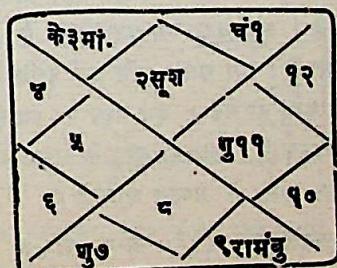 के३मां. चं१
४ २सूश १२
५ गु११
६ ८ १०
शु७ ९रामंबु